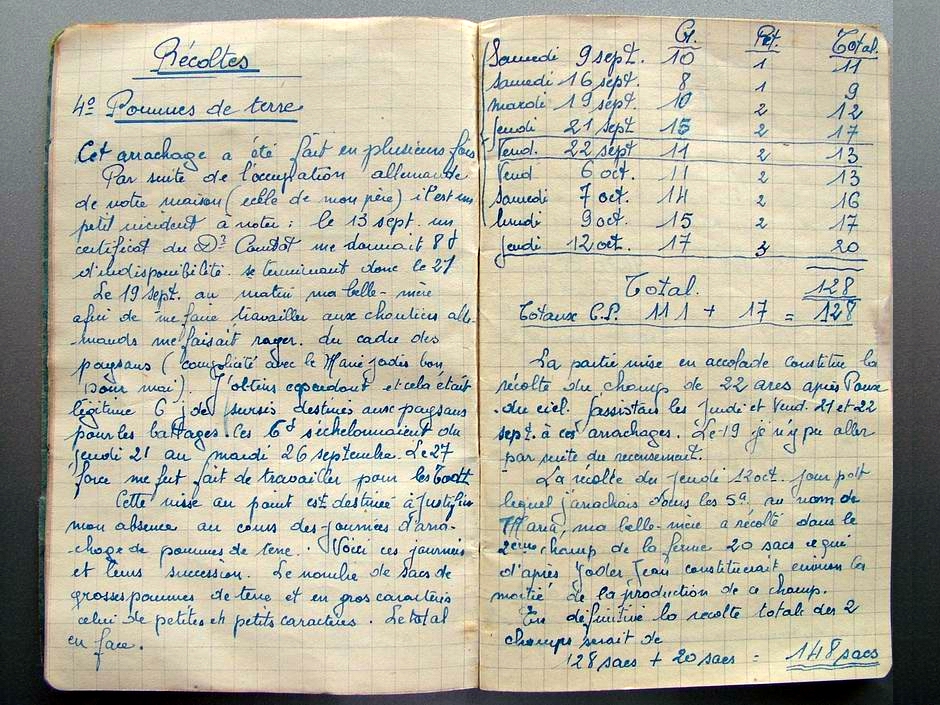 Récoltes
4º Pommes de terre
Cet arrachage a été fait en plusieurs fois
Par suite de l'occupation allemande
de notre maison (celle de mon père) il est un
petit incident à noter : le 13 sept. un
certificat du Dr me donnait 8 j
d'indisponibilité. se terminant donc le 21
Le 19 sept. au matin ma belle-mère
afin de me faire travailler aux chantiers alle-
mands me faisait rayer du cadre des
paysans (complicité avec le Maire jadis bon
pour moi). J'obtins cependant et cela était
légitime 6 j de sursis destinés aux paysans
pour les battages. Ces 6 j s'échelonnaient du
jeudi 21 au mardi 26 septembre. Le 27
force me fut fait de travailler pour les
Cette mise au point est destinée à justifier
mon absence au cours des journées d'arra-
-chage de pommes de terre. Voici ces journées
et leur succession. Le nombre de sacs de
grosses pommes de terre et en gros caractères
celui de petites en petits caractères. Le total
en face.
Gr. Pet. Total.
Samedi 9 sept. 10 1 11
samedi 16 sept. 8 1 9
mardi 19 sept. 10 2 12
jeudi 21 sept 15 2 17
Vend. 22 sept 11 2 13
Vend 6 oct. 11 2 13
samedi 7 oct. 14 2 16
lundi 9 oct. 15 2 17
jeudi 12 oct. 17 3 20
Total. 128
Totaux G.P. 111 + 17 = 128
La partie mise en accolade constitue la
récolte du champ de 22 ares après
du ciel. J'assistais les Jeudi et Vend. 21 et 22
sept. à ces arrachages. Le 19 je n'y pu aller
par suite du recensement.
La récolte du jeudi 12 oct. jour
lequel j'arrachais dans les 5a. au nom de
Maria, ma belle-mère a récolté dans le
2ème champ de la ferme 20 sacs ce qui
d'après Yoder Jean constituerait environ la
moitié de la production de ce champ.
En définitive la récolte totale des 2
champs serait de
128 sacs + 20 sacs = 148 sacs